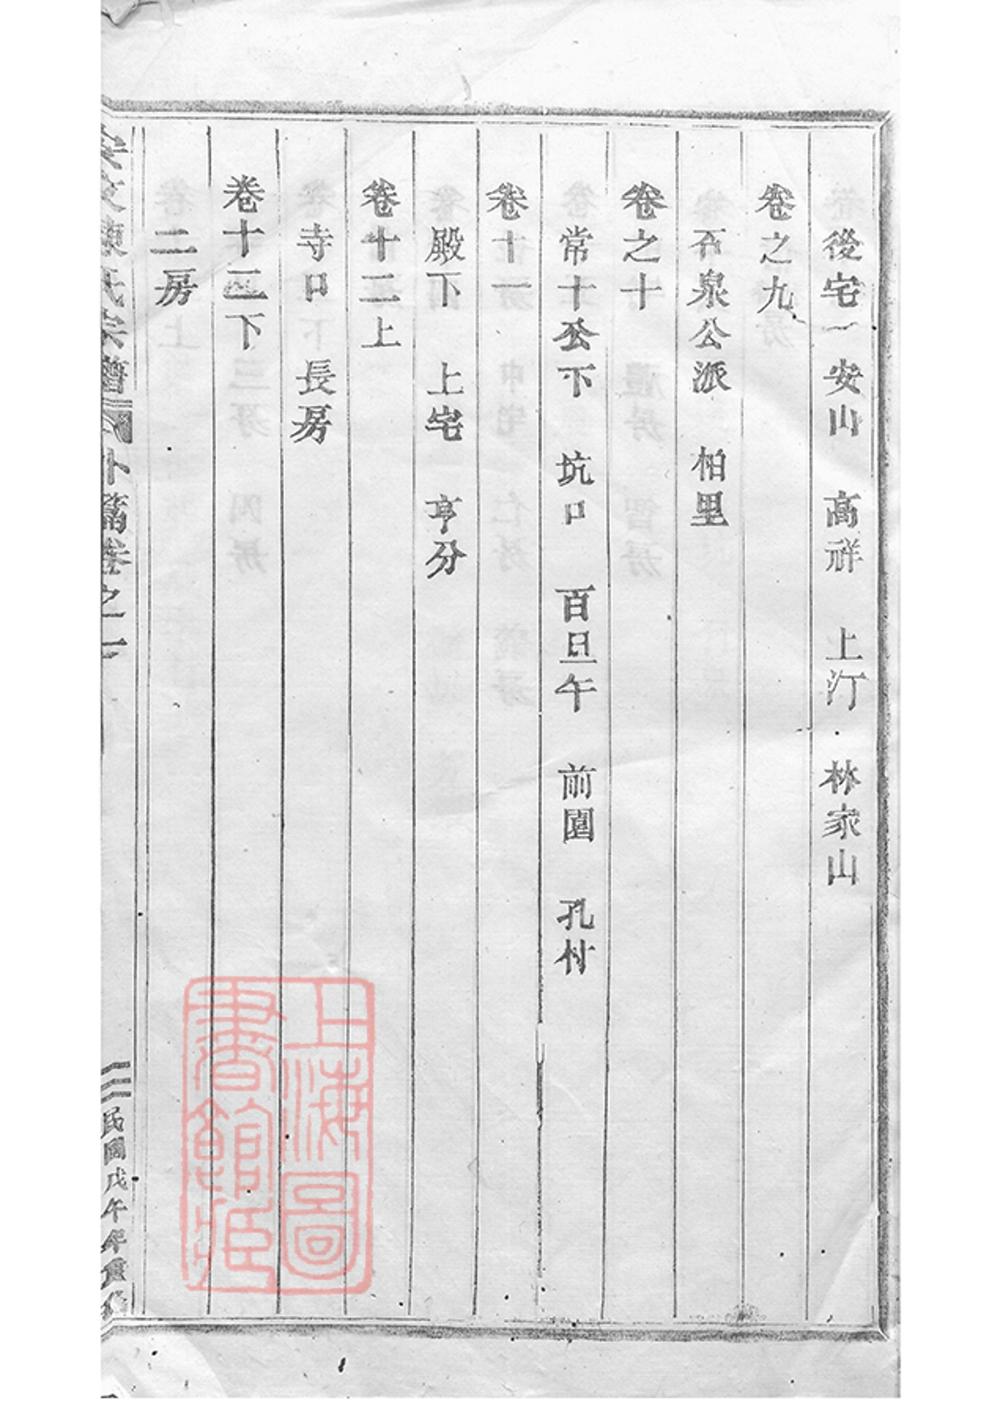 後宅一 安山 高祥 上汀 林家山
卷之九
石泉公派 柏里
卷之十
常十公下 坑口 百旦午 前園 孔村
卷十一
殿下 上宅 亨分
卷十二上
寺口 長房
卷十二下
二房
陳氏宗譜 外篇卷之一
三 民國戊午年重
上海圖書館藏